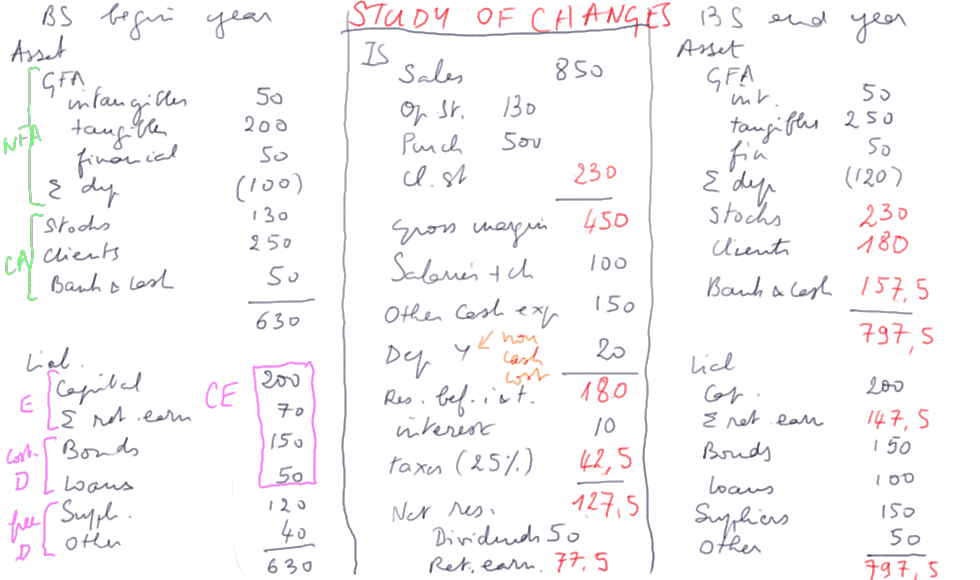 BS begin year
Asset
GFA
intangibles 50
tangibles 200
financial 50
Σ dep (100)
NFA
Stocks 130
Clients 250
Bank & cash 50
CA
630
Lial.
Capital 200
Σ ret. earn 70
E
CE
Bonds 150
Loans 50
cost. D
Suppl. 120
Other 40
free D
630
STUDY OF CHANGES
IS
Sales 850
Op St. 130
Purch 500
Cl. St 230
Gross margin 450
Salaries + ch 100
Other cash exp 150
Dep Y 20
non
cash
cost
Res. bef. int. 180
interest 10
taxes (25%) 42,5
Net res. 127,5
Dividends 50
Ret. earn. 77.5
BS end year
Asset
GFA
int. 50
tangibles 250
fin 50
Σ dep (120)
Stocks 230
Clients 180
Bank & cash 157,5
797,5
Lial
Cap. 200
Σ ret. earn 147,5
Bonds 150
Loans 100
Suppliers 150
Other 50
797,5